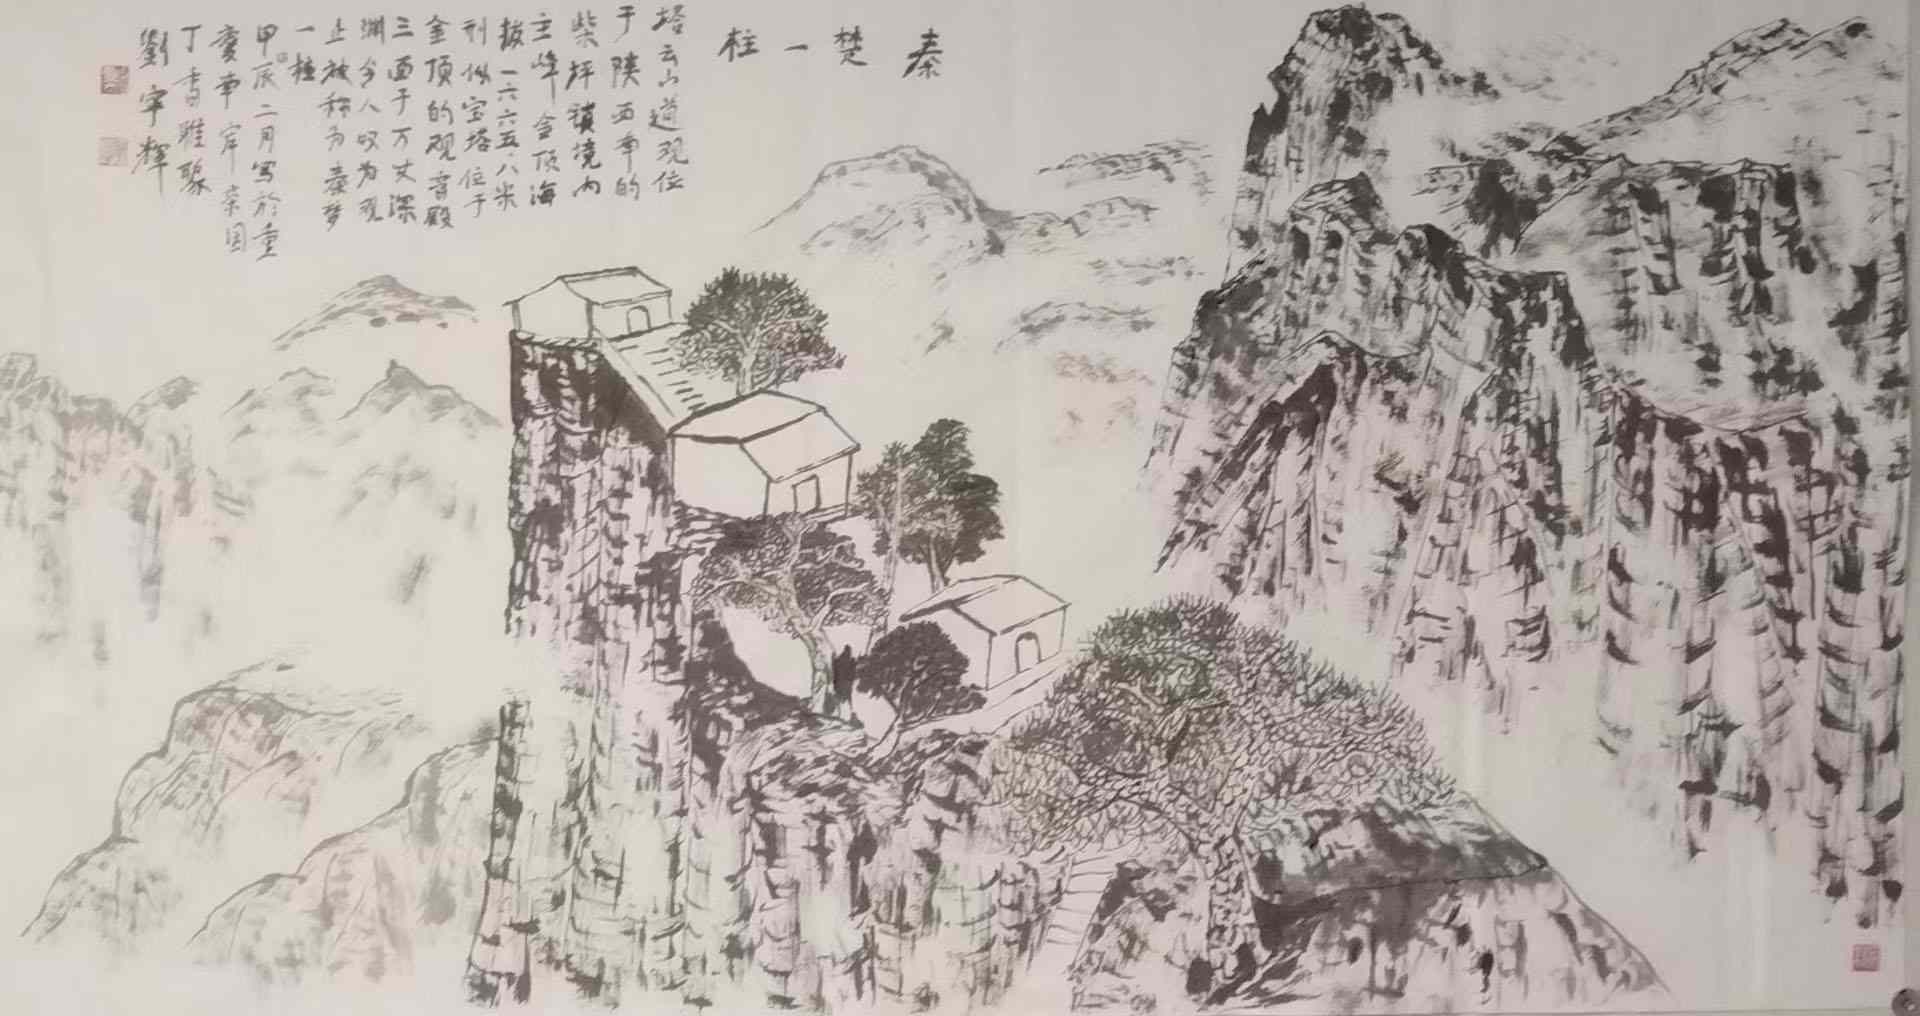 秦楚一柱
塔云山道观位
于陕西南的
柴坪镇境内
主峰金顶海
拔一六六五.八米
刑似宝塔位于
金顶的观音殿
三面于万丈深
渊令人叹为观
止被称为秦楚
一柱
甲辰二月写於重
慶南岸茶园
丁香雅聚
劉宇輝